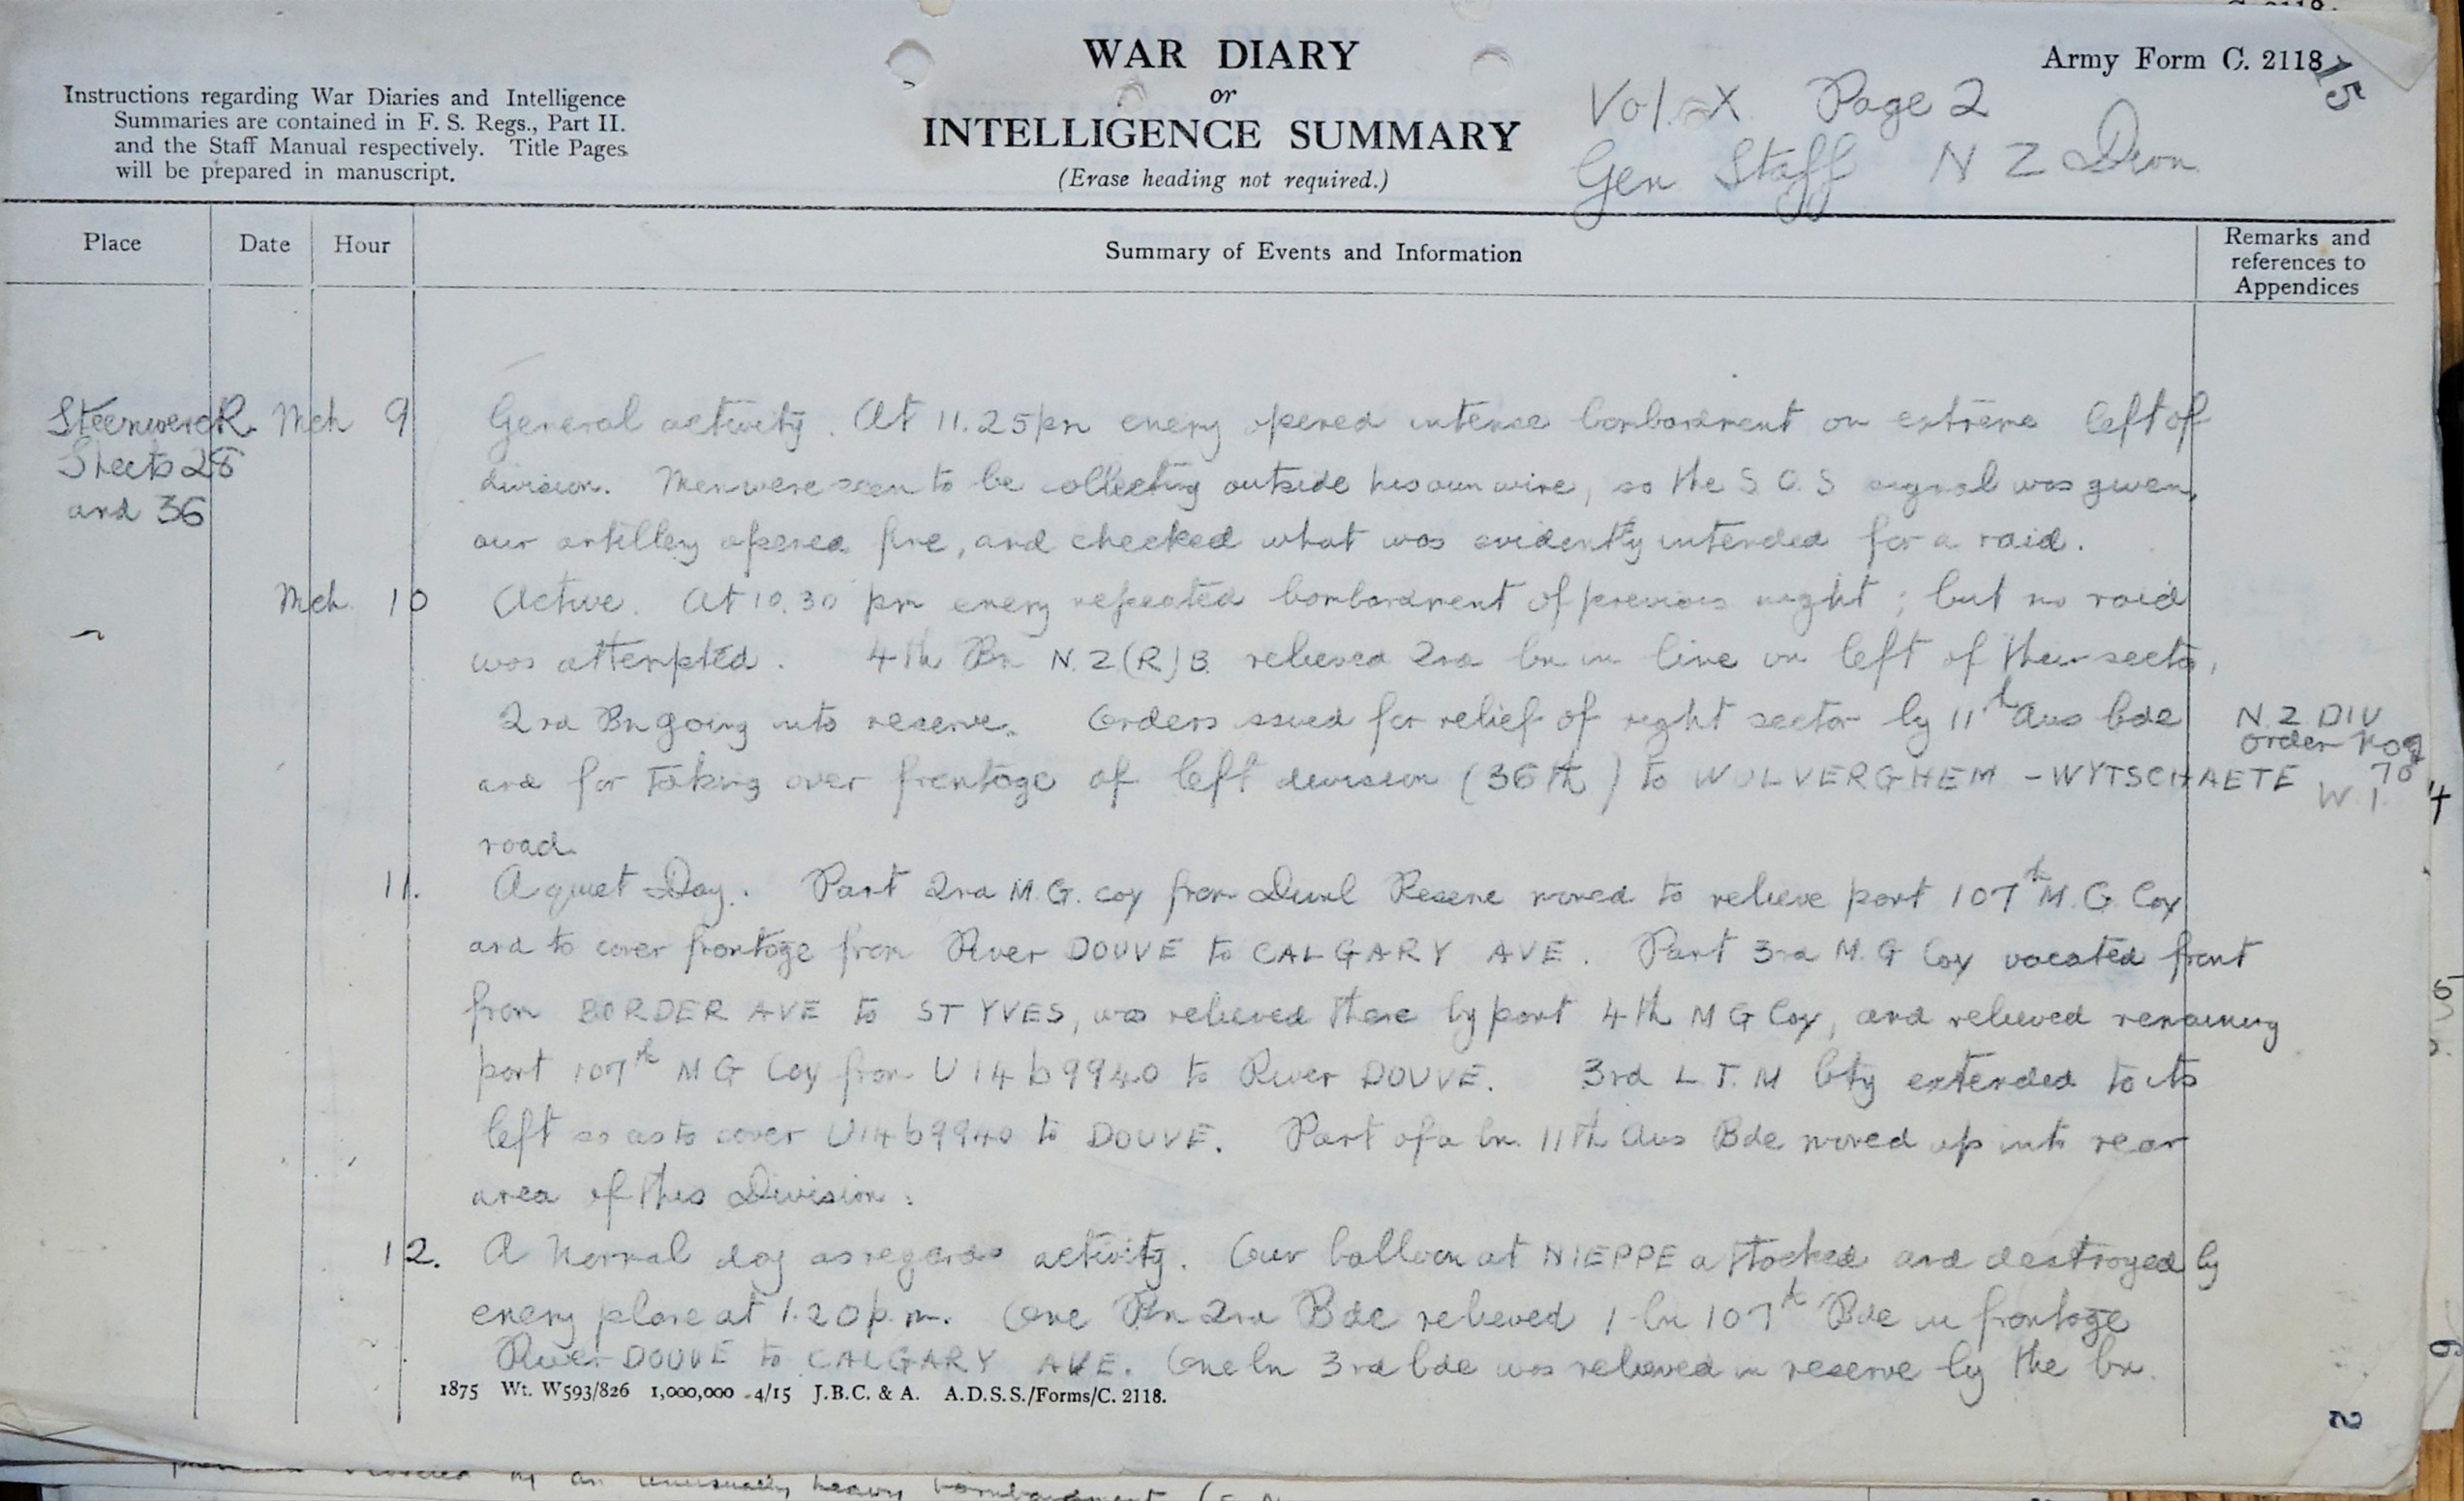 WAR DIARY
or
INTELLIGENCE SUMMARY
(Erase heading not required.)
Army Form C. 2118
15
Instructions regarding War Diaries and Intelligence
Summaries are contained in F. S. Regs., Part II.
and the Staff Manual respectively. Title Pages
will be prepared in manuscript.
Vol. X Page 2
Gen Staff N Z Divn
Place
Date
Hour
Summary of Events and Information
Remarks and
references to
Appendices
Steenwerck
Sheets 28
and 36
Mch 9
General activity. At 11.25pm enemy opened intense bombardment on extreme left of
division. Men were seen to be collecting outside his own wire, so the S O S signal was given,
our artillery opened fire, and checked what was evidently intended for a raid.
Mch 10
Active. At 10.30 pm enemy repeated bombardment of previous night; but no raid
was attempted. 4th Bn N.Z(R)B. relieved 2nd bn in line on left of their sector,
2nd Bn going into reserve. Orders issued for relief of right sector by 11th Aus bde
and for taking over frontage of left division (36th) to WULVERGHEM - WYTSCHAETE
road.
N.Z DIV
order No
70
W.1.
4
11.
A quiet Day. Part 2nd M.G. coy from Divnl Reserve moved to relieve part 107th M.G. Coy
and to cover frontage from River DOUVE to CALGARY AVE. Part 3rd M.G Coy vacated front
from BORDER AVE to ST YVES, was relieved there by part 4th M G Coy, and relieved remaining
part 107th M G Coy from U 14 b 9940 to River DOUVE. 3rd L.T.M bty extended to its
left so as to cover U14 b 9940 to DOUVE. Part of a bn. 11th Aus Bde moved up into rear
area of this Division.
12.
A Normal day as regards activity. Our balloon at NIEPPE attacked and destroyed by
enemy plane at 1.20 p.m. One Bn 2nd Bde relieved 1 bn 107th Bde in frontage
River DOUVE to CALGARY AVE. One bn 3rd bde was relieved in reserve by the bn.
1875 Wt. W593/826 1,000,000 4/15 J.B.C. & A. A.D.S.S./Forms/C. 2118.
5
6
2
an unusually heavy bombardment